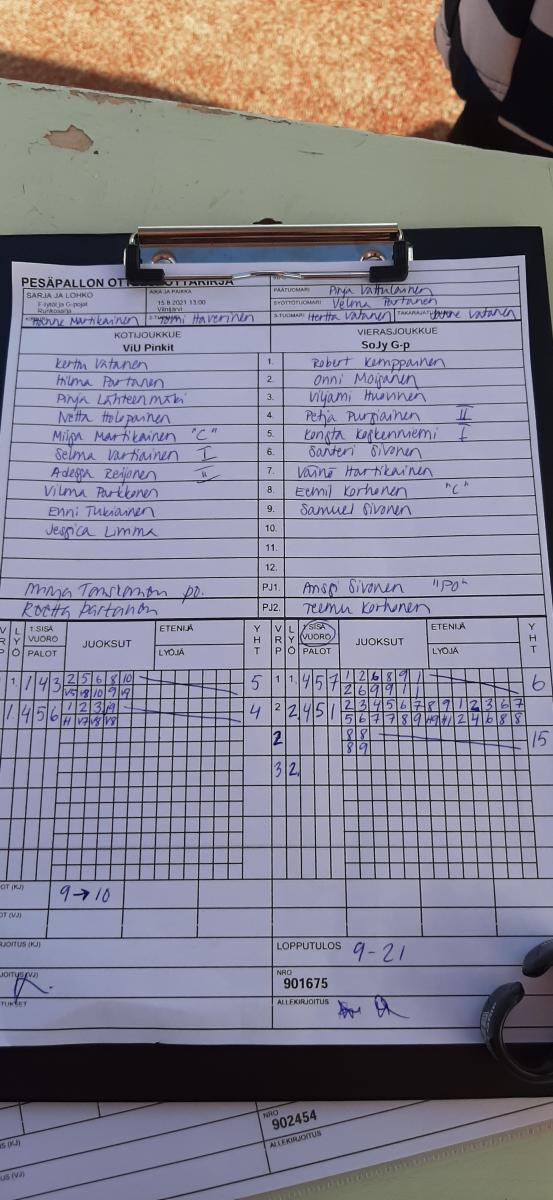 PESÄPALLON OTT
SARJA JA LOHKO
F-tytöt ja G-pojat
Runkosarja
AIKA JA PAIKKA
15.8.2021 13:00
Viinijärvi
PÄÄTUOMARI Pinja Vattulainen
SYÖTTÖTUOMARI Velma Partanen
Martikainen
Tommi Haverinen
3-TUOMARI Hertta Vatanen
TAKARAJAT Vatanen
KOTIJOUKKUE
ViU Pinkit
VIERASJOUKKUE
SoJy G-p
Kerttu Vatanen 1. Robert Kemppainen
Hilma Partanen 2. Onni Moijanen
Pinja Lähteenmäki 3. Viljami Huovinen
Netta Holopainen 4. Petja Purpiainen II
Milja Martikainen "C" 5. Konsta Koskenniemi I
Selma Vartiainen I 6. Santeri Sivonen
Adessa Reijonen II 7. Väinö Hartikainen
Vilma Parkkonen 8. Eemil Korhonen "C"
Enni Tukiainen 9. Samuel Sivonen
Jessica Limma 10.
11.
12.
PJ1. Anssi Sivonen "PO"
Partanen PJ2. Teemu Korhonen
V R P LYÖ 1.SISÄ VUORO PALOT JUOKSUT ETENIJÄ LYÖJÄ YHT V R P LYÖ 1.SISÄ VUORO PALOT JUOKSUT ETENIJÄ LYÖJÄ YHT
1. 1 4 3 2 5 6 8 10 5 1 1. 4 5 7 1 2 6 8 9 1 6
V5 V8 10 9 V9 2 6 9 9 1 1
1. 4 5 6 1 2 3 4 2 2. 4 5 1 2 3 4 5 6 7 8 9 1 2 3 6 7
5 6 7 7 8 9 H9 H1 2 4 6 8 8
2 8 8 15
8 9
3 2.
OT (KJ) 9 → 10
OT (VJ)
RJOITUS (KJ)
LOPPUTULOS 9-21
JOITUS (VJ)
NRO
901675
TUKSET
ALLEKIRJOITUS
NRO
902454
S (KJ)
ALLEKIRJOITUS
US (VJ)